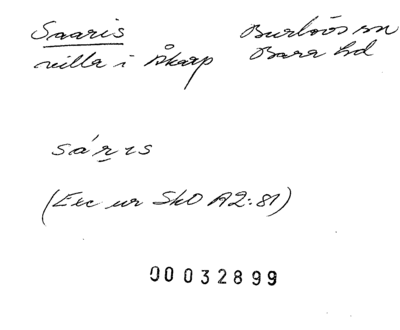 Saaris Burlövs sn
villa i Åkarp Bara hd
sáṟıs
(Exc ur SkO A2:81)
00032899